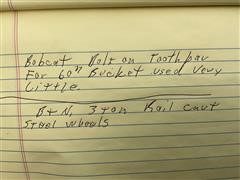 Bobcat Bolt on Tooth bar
For 60" Bucket used Very
Little.
B+N, 3 ton Rail cart
Steel wheels